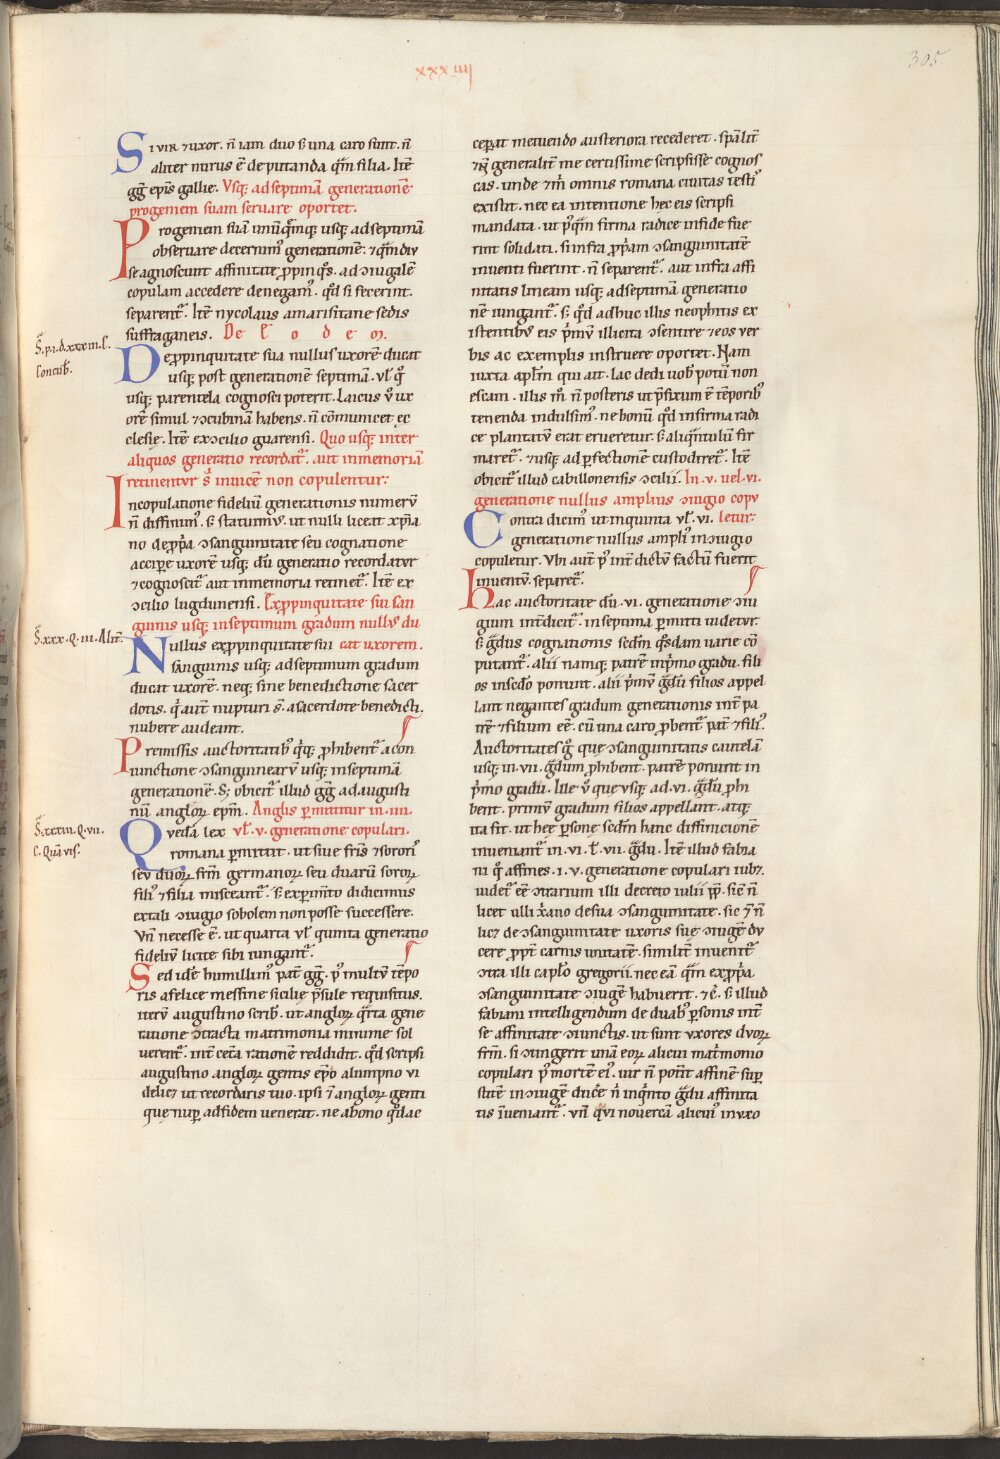 xxxiiij
305
Si vir ⁊ uxor. n̄ iam duo s; una caro sunt. n̄
aliter nurus ē deputanda q̄m filia. Itē
gḡ epis̄ gallie. Vsq; ad septimā generationē
progeniem suam seruare oportet.
Progeniem suā unūq̄mq; usq; ad septimā
obseruare decernim᷒ generationē. ⁊ q̄mdiu
se agnoscunt affinitate ꝓpinq̄s. ad ↄiugalē
copulam accedere denegam᷒. qd̄ si fecerint.
separent᷑. Itē nycolaus amarisitane sedis
suffraganeis. De eodem.
S̄. p. i. d. xxxiii. c̄.
concub̄.
De ꝓpinquitate sua nullus uxorē ducat
usq; post generationē septimā. vl̄ q̄
usq; parentela cognosci poterit. Laicus ū ux
orē simul ⁊ ↄcubinā habens. n̄ cōmunicet ec
clesie. Itē ex ↄcilio guarensi. Quo usq; inter
aliquos generatio recordat᷑. aut in memoriā
retinentur s̄ inuicē non copulentur.
In copulatione fideliū generationis numerū
n̄ diffinim᷒. s; statuimus. ut nulli liceat xp̄ia
no de ꝓp̄a ↄsanguinitate seu cognatione
accip̄e uxorē usq; dū generatio recordatur
⁊ cognoscit᷑ aut in memoria retinet᷑. Itē ex
ↄcilio lugdunensi. Ex ꝓpinquitate sui san
guinis usq; in septimum gradum nullus du
cat uxorem.
S̄. xxx. q. iii. Alit᷑.
Nullus ex ꝓpinquitate sui
sanguinis usq; ad septimum gradum
ducat uxorē. neq; sine benedictione sacer
dotis. q̄ aut̄ nupturi s̄. a sacerdote benedicti.
nubere audeant.
Premissis auctoritatib᷒ q̄q; ꝓhibent᷑ a con
iunctione ↄsanguinearū usq; in septimā
generationē. S; obicit᷑ illud gḡ ad augusti
nū angloꝝ epm̄. Anglis ꝑmittitur in .iiii.
vl̄ .v. generatione copulari.
S̄. xxxiii. q. vii.
c. Quā uis.
Quedā lex
romana ꝑmittit. ut siue fris̄ ⁊ soroꝛ᷒
seu duoꝝ frm̄ germanoꝝ seu duarū soroꝝ
fili᷒ ⁊ filia misceant᷑. s; expim̄to didicimus
ex tali ↄiugio sobolem non posse successere.
Vn̄ necesse ē. ut quarta vl̄ quinta generatio
fideliū licite sibi iungant᷑.
Sed idē humillim᷒ pat᷑ gḡ. p᷒ multū tēpo
ris a felice messine sicilie p̄sule requisitus.
iterū augustino scrib̄. ut angloꝝ q̄rta gene
ratione ↄtracta matrimonia minime sol
uerent᷑. int᷑ cet̄a rationē reddidit. qd̄ scripsi
augustino angloꝝ gentis epō alumpno vi
delic; ut recordaris tuo. ipsi ⁊ angloꝝ genti
que nup̄ ad fidem uenerat. ne a bono q̄ lae
cep̄at metuendo austeriora recederet. spāl̄it᷑
⁊ n̄ generalit᷑ me certissime scripsisse cognos
cas. unde ⁊ m̄ omnis romana ciuitas testi᷒
existit. nec ea intentione hec eis scripsi
mandata. ut p᷒q̄m firma radice in fide fue
rint solidata. si infra ꝓp̄am ↄsanguinitatē
inuenti fuerint. n̄ separent᷑. aut infra affi
nitatis lineam usq; ad septimā generatio
nē iungant᷑. s; qd̄ adhuc illis neophitis ex
istentibus eis p̄mū illicita ↄsentire ⁊ eos uer
bis ac exemplis instruere oportet. Nam
iuxta aplm̄ qui ait. Lac dedi uob̄ potū non
escam. illis m̄. n̄ posteris ut p̄fixum ē tēporib᷒
tenenda indulsim᷒. ne bonū qd̄ infirma radi
ce plantatū erat erueretur. s; aliq̄ntulū fir
maret᷑. ⁊ usq; ad ꝑfectionē custodiret᷑. Itē
obicit᷑ illud cabillonensis ↄcilii. In .v. uel .vi.
generatione nullus amplius ↄiugio copu
letur.
Contradicim᷒ ut in quinta vl̄ .vi.
generatione nullus ampli᷒ in ↄiugio
copuletur. Vbi aut̄ p᷒ int᷑dictū factū fuerit
inuentū. separet᷑.
Hac auctoritate dū .vi. generatione ↄiu
gium int᷑dicit᷑. in septima ꝑmitti uidetur
s; ḡdus cognationis scdm̄ q̄sdam uarie cō
putant᷑. alii namq; patrē in p̄mo gradu. fili
os in scdō ponunt. alii p̄mū ḡdū filios appel
lant negantes gradum generationis int᷑ pa
trē ⁊ filium eē. cū una caro ꝓbent᷑ pat᷑ ⁊ fili᷒.
Auctoritates ḡ que ↄsanguinitatis cautelā
usq; in .vii. ḡdum ꝓhibent. patrē ponunt in
p̄mo gradu. Ille ū que usq; ad .vi. ḡdū ꝓhi
bent. primū gradum filios appellant. atq;
ita fit. ut hee ꝑsone scdm̄ hanc diffinicionē
inueniant᷑ in .vi. l̄ .vii. ḡdu. Itē illud fabia
ni q̄ affines .i. v. generatione copulari iub;.
uidet᷑ eē ↄtrarium illi decreto iulii pp̄. sic̄ n̄
licet ulli xr̄ano de sua ↄsanguinitate. sic ⁊ n̄
lic; de ↄsanguinitate uxoris sue ↄiugē du
cere ꝓpt᷑ carnis unitatē. similit᷑ inuenit᷑
ↄtra illi capl̄o gregorii. nec eā q̄m ex ꝓp̄a
ↄsanguinitate ↄiugē habuerit. ⁊c̄. s; illud
fabiani intelligendum de duab᷒ ꝑsonis int᷑
se affinitate ↄiunctis. ut sunt uxores duoꝝ
frm̄. si ↄtingerit unā eoꝝ alicui mat᷑monio
copulari p᷒ mortē ei᷒. uir n̄ pot᷑it affinē sup̄
stitē in ↄiugē duc̄e n̄ in q̄nto ḡdu affinita
tis īueniant᷑. vn̄ qui nouercā alicui᷒ in uxo